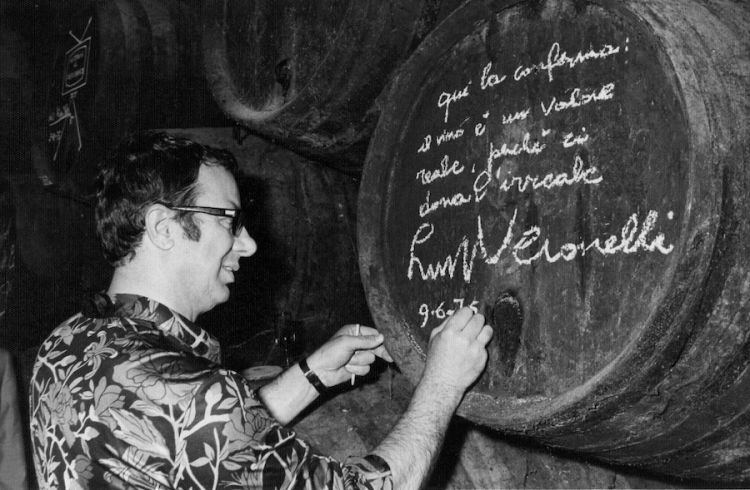 qui la conferma:
il vino è un valore
reale, perché ci
dona l'irreale
Luigi Veronelli
9-6-75